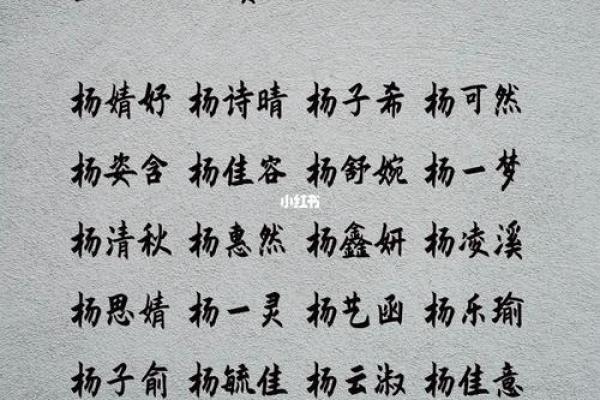 杨婧妤 杨诗晴 杨子希 杨可然
杨姿含 杨佳容 杨舒婉 杨一梦
小红书
杨清秋 杨惠然 杨鑫妍 杨凌溪
杨思婧 杨一灵 杨艺函 杨乐瑜
杨子俞 杨毓佳 杨云淑 杨佳意